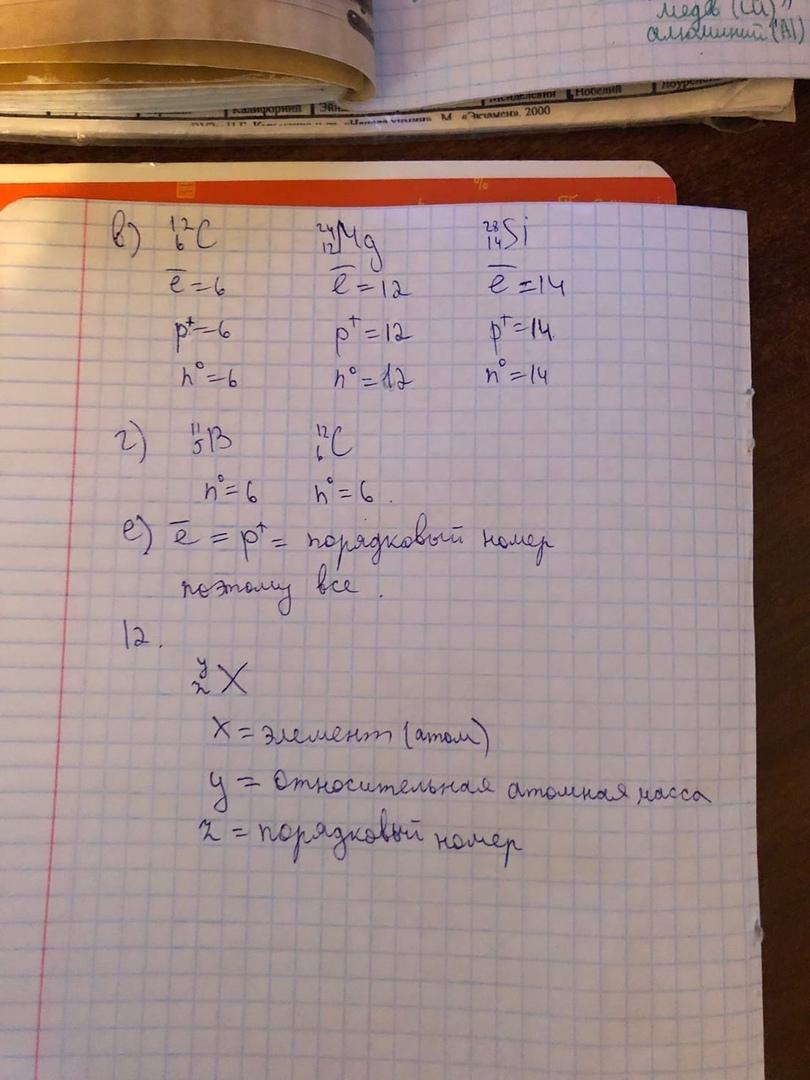 медь (Cu)"
алюминий (Al)
Калифорний Эйн Менделевий Нобелий Лоуренс
М. «Экзамен», 2000
%
в) ¹²₆C ²⁴₁₂Mg ²⁸₁₄Si
e̅ = 6 e̅ = 12 e̅ = 14
p⁺ = 6 p⁺ = 12 p⁺ = 14
n⁰ = 6 n⁰ = 12 n⁰ = 14
г) ¹¹₅B ¹²₆C
n⁰ = 6 n⁰ = 6 .
е) e̅ = p⁺ = порядковый номер
поэтому все .
12.
ʸ_zX
X = элемент (атом)
y = относительная атомная масса
z = порядковый номер